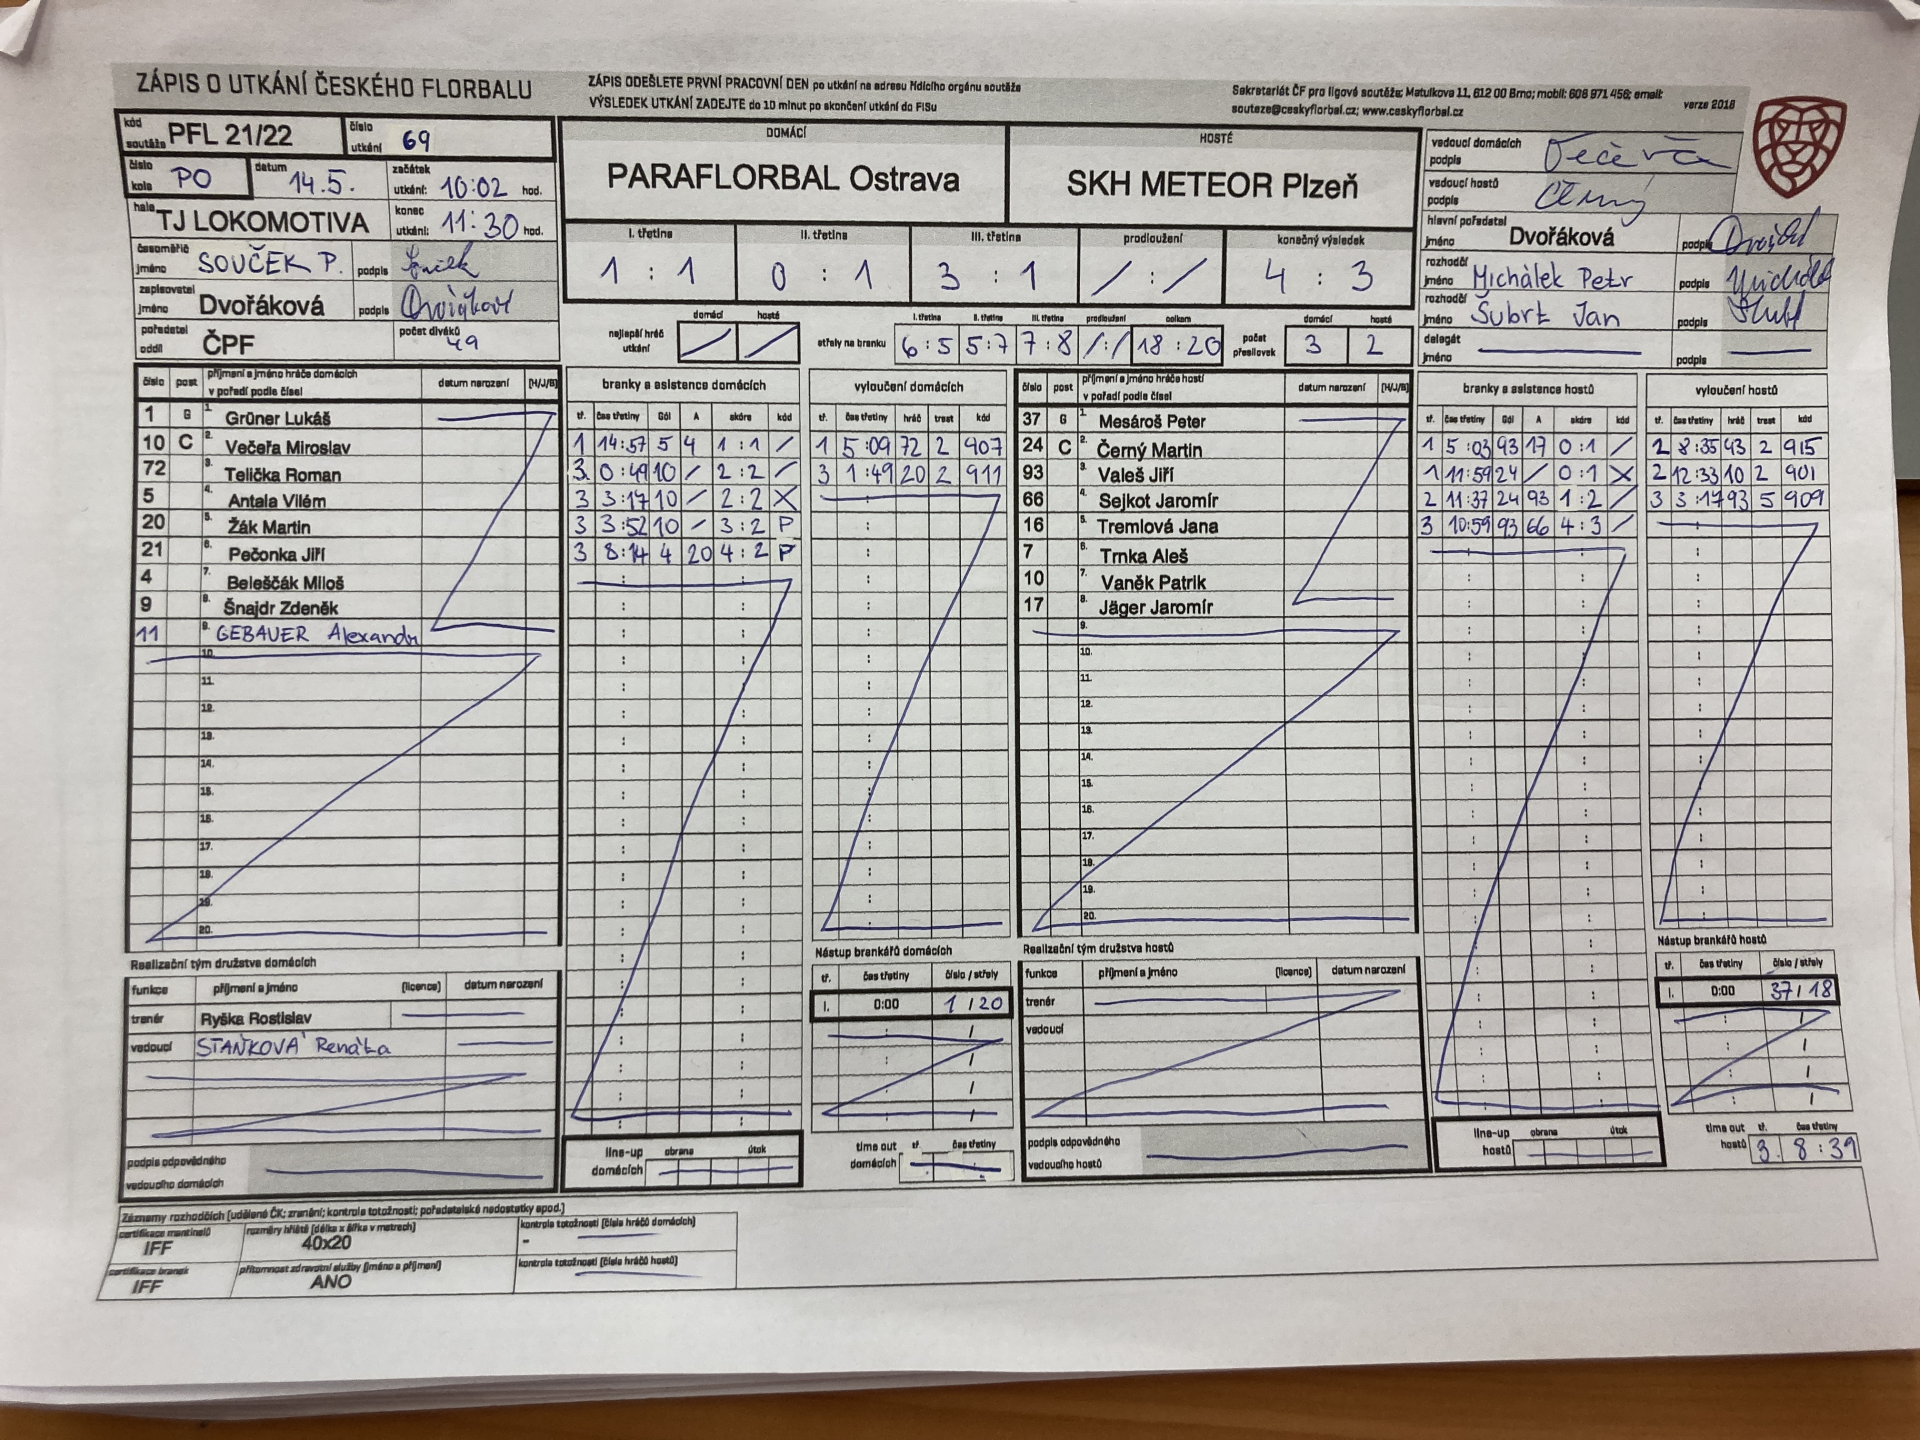 ZÁPIS O UTKÁNÍ ČESKÉHO FLORBALU
ZÁPIS ODEŠLETE PRVNÍ PRACOVNÍ DEN po utkání na adresu řídícího orgánu soutěže
VÝSLEDEK UTKÁNÍ ZADEJTE do 10 minut po skončení utkání do FISu
Sekretariát ČF pro ligové soutěže; Matulkova 11, 612 00 Brno; mobil: 608 971 456; email:
souteze@ceskyflorbal.cz; www.ceskyflorbal.cz
verze 2018
kód soutěže PFL 21/22 číslo utkání 69
číslo kola PO datum 14.5. začátek utkání: 10:02 hod.
hala TJ LOKOMOTIVA konec utkání: 11:30 hod.
časoměřič jméno SOUČEK P. podpis
zapisovatel jméno Dvořáková podpis Dvořáková
pořadatel oddíl ČPF počet diváků 49
DOMÁCÍ HOSTÉ
PARAFLORBAL Ostrava SKH METEOR Plzeň
I. třetina II. třetina III. třetina prodloužení konečný výsledek
1 : 1 0 : 1 3 : 1 / : / 4 : 3
nejlepší hráč utkání domácí hosté
I. třetina II. třetina III. třetina prodloužení celkem
střely na branku 6:5 5:7 7:8 /:/ 18:20
počet přesilovek domácí 3 hosté 2
vedoucí domácích podpis Večeřa
vedoucí hostů podpis Černý
hlavní pořadatel jméno Dvořáková podpis
rozhodčí jméno Michálek Petr podpis
rozhodčí jméno Šubrt Jan podpis
delegát jméno podpis
číslo post příjmení a jméno hráče domácích v pořadí podle čísel datum narození [H/J/B]
1 G 1. Grüner Lukáš
10 C 2. Večeřa Miroslav
72 3. Telička Roman
5 4. Antala Vilém
20 5. Žák Martin
21 6. Pečonka Jiří
4 7. Beleščák Miloš
9 8. Šnajdr Zdeněk
11 9. GEBAUER Alexandr
10.
11.
12.
13.
14.
15.
16.
17.
18.
19.
20.
branky a asistence domácích
tř. čas třetiny Gól A skóre kód
1 14:57 5 4 1:1 /
3. 0:49 10 / 2:2 /
3 3:17 10 / 2:2 X
3 3:52 10 / 3:2 P
3 8:14 4 20 4:2 P
vyloučení domácích
tř. čas třetiny hráč trest kód
1 5:09 72 2 907
3 1:49 20 2 911
číslo post příjmení a jméno hráče hostí v pořadí podle čísel datum narození [H/J/B]
37 G 1. Mesároš Peter
24 C 2. Černý Martin
93 3. Valeš Jiří
66 4. Sejkot Jaromír
16 5. Tremlová Jana
7 6. Trnka Aleš
10 7. Vaněk Patrik
17 8. Jäger Jaromír
9.
10.
11.
12.
13.
14.
15.
16.
17.
18.
19.
20.
branky a asistence hostů
tř. čas třetiny Gól A skóre kód
1 5:03 93 17 0:1 /
1 11:59 24 / 0:1 X
2 11:37 24 93 1:2 /
3 10:59 93 66 4:3 /
vyloučení hostů
tř. čas třetiny hráč trest kód
2 8:35 93 2 915
2 12:33 10 2 901
3 3:17 93 5 909
Realizační tým družstva domácích
funkce příjmení a jméno [licence] datum narození
trenér Ryška Rostislav
vedoucí STAŇKOVÁ Renáta
podpis odpovědného vedoucího domácích
line-up domácích obrana útok
Nástup brankářů domácích
tř. čas třetiny číslo / střely
I. 0:00 1 / 20
time out domácích tř. čas třetiny
Realizační tým družstva hostů
funkce příjmení a jméno [licence] datum narození
trenér
vedoucí
podpis odpovědného vedoucího hostů
line-up hostů obrana útok
Nástup brankářů hostů
tř. čas třetiny číslo / střely
I. 0:00 37 / 18
time out hostů tř. čas třetiny
3. 8:39
Záznamy rozhodčích [udělené ČK; zranění; kontrola totožnosti; pořadatelské nedostatky apod.]
certifikace mantinelů IFF rozměry hřiště [délka x šířka v metrech] 40x20 kontrola totožnosti [čísla hráčů domácích] -
certifikace branek IFF přítomnost zdravotní služby [jméno a příjmení] ANO kontrola totožnosti [čísla hráčů hostů]